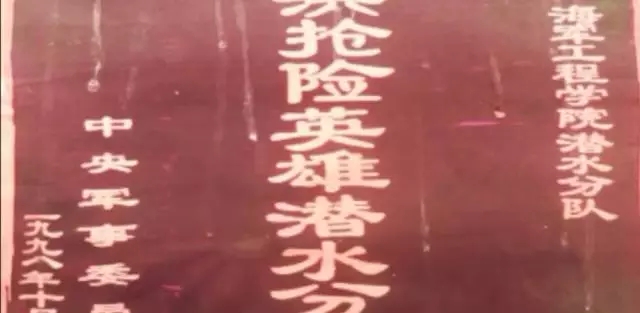 海军工程学院潜水分队
抢险英雄潜水分
中央军事委
一九九八年十